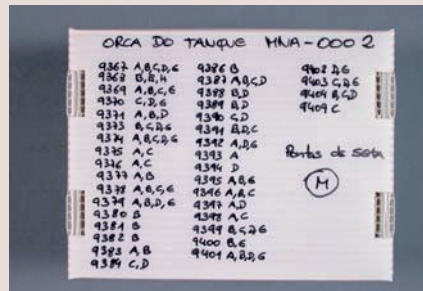 ORCA DO TANQUE MNA-0002
9367 A,B,C,D,E
9368 B,E,H
9369 A,B,C,E
9370 C,D,E
9371 A,B,D
9373 B,C,D,E
9374 A,B,C,D,E
9375 A,C
9376 A,C
9377 A,B
9378 A,B,C,E
9379 A,B,D,E
9380 B
9381 B
9382 B
9383 A,B
9384 C,D
9386 B
9387 A,B,C,D
9388 B,D
9389 B,D
9390 C,D
9391 B,D,C
9392 A,D,E
9393 A
9394 D
9395 A,B,E
9396 A,B,C
9397 A,D
9398 A,C
9399 B,C,D,E
9400 B,E
9401 A,B,D,E
9402 D,E
9403 C,D,E
9404 B,C,D
9409 C
Pontas de seta
M